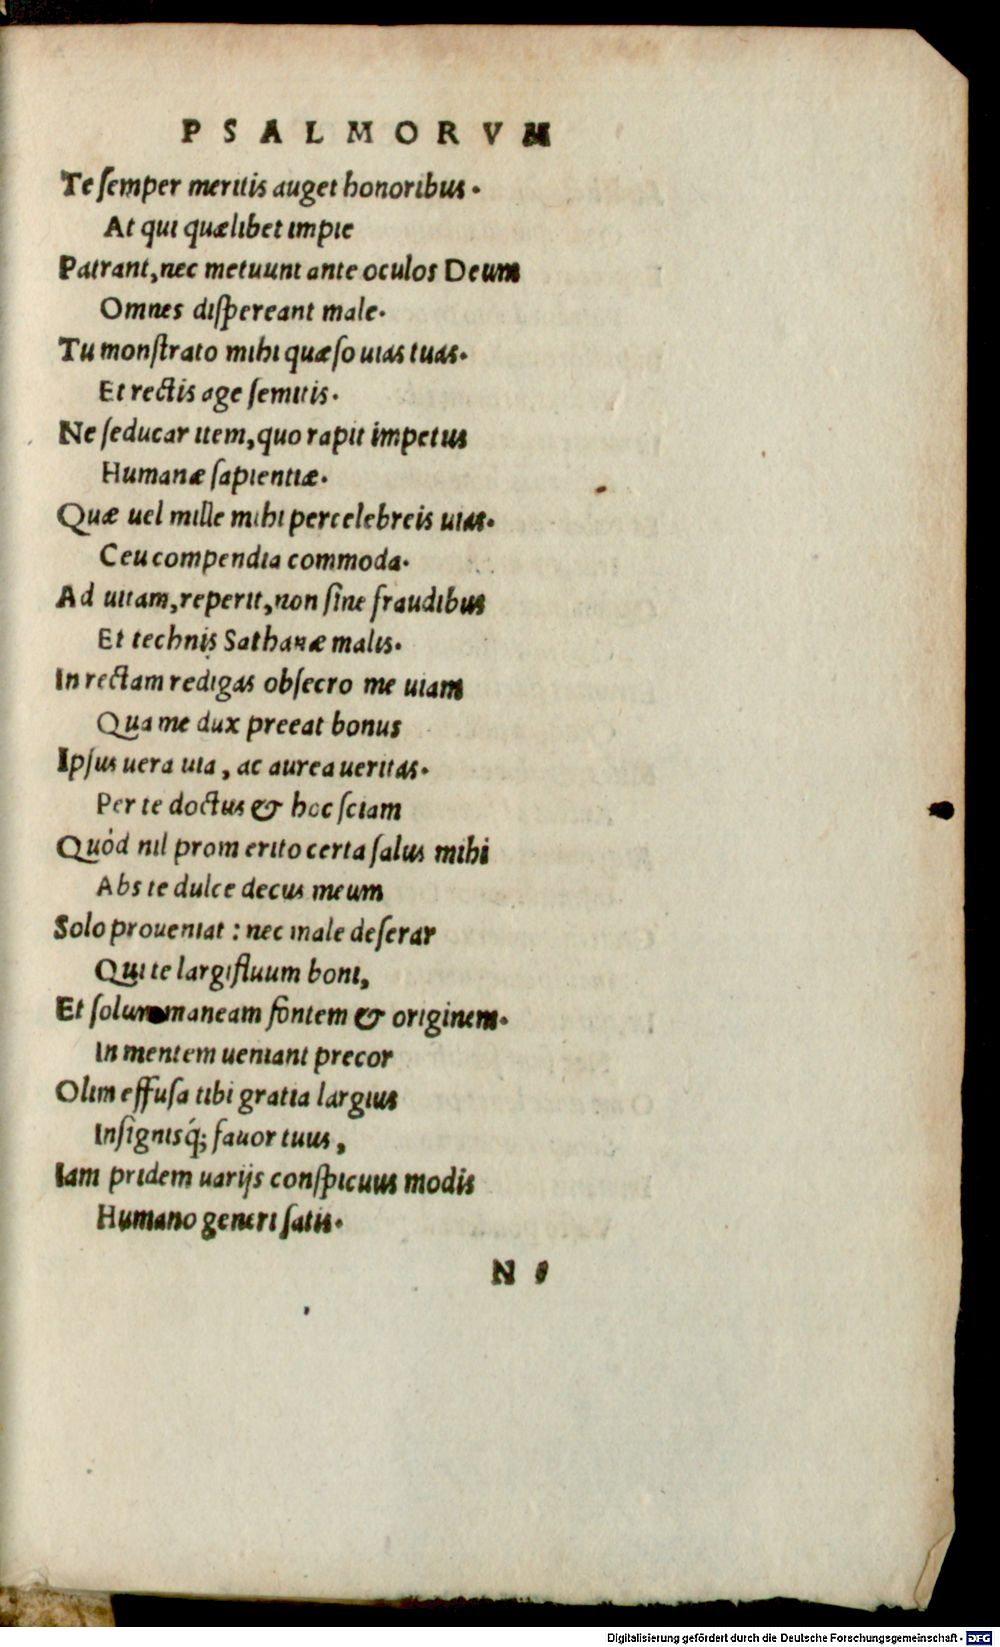 PSALMORVM
Te ſemper meritis auget honoribus.
At qui quælibet impie
Patrant, nec metuunt ante oculos Deum
Omnes diſpereant male.
Tu monſtrato mihi quæſo uias tuas.
Et rectis age ſemitis.
Ne ſeducar item, quo rapit impetus
Humanæ ſapientiæ.
Quæ uel mille mihi percelebreis uias.
Ceu compendia commoda.
Ad uitam, reperit, non ſine fraudibus
Et technis Sathanæ malis.
In rectam redigas obſecro me uiam
Qua me dux preeat bonus
Ipſus uera uia, ac aurea ueritas.
Per te doctus & hoc ſciam
Quòd nil prom erito certa ſalus mihi
Abs te dulce decus meum
Solo proueniat : nec male deſerar
Qui te largifluum boni,
Et ſolum maneam fontem & originem.
In mentem ueniant precor
Olim effuſa tibi gratia largius
Inſignisq́; fauor tuus,
Iam pridem uarijs conſpicuus modis
Humano generi ſatis.
N
Digitalisierung gefördert durch die Deutsche Forschungsgemeinschaft - DFG